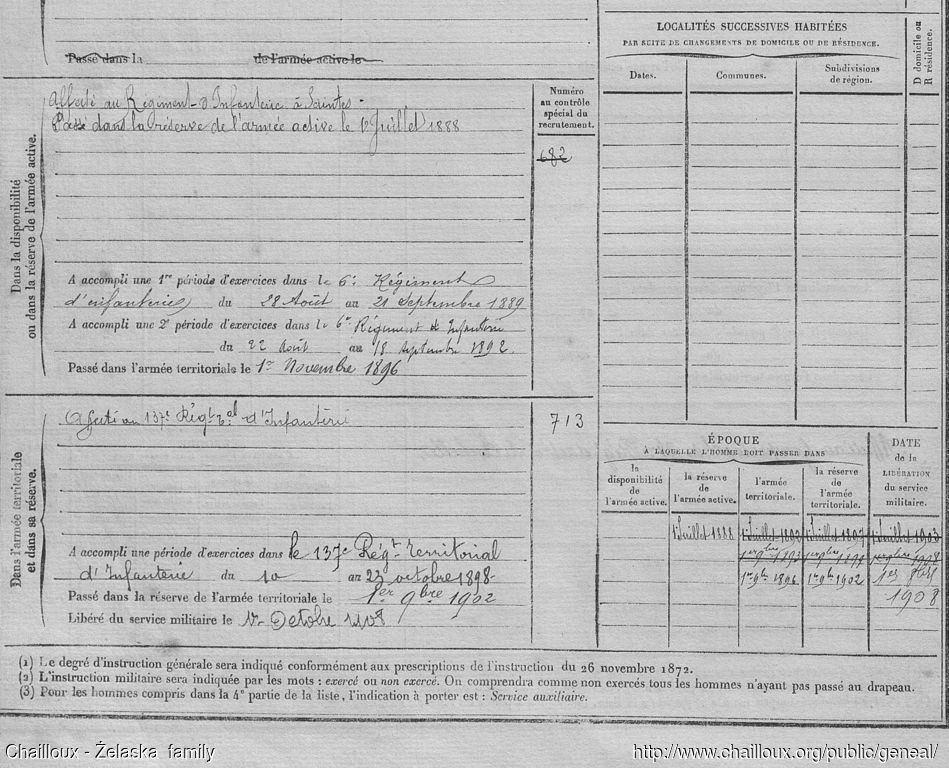 LOCALITÉS SUCCESSIVES HABITÉES
PAR SUITE DE CHANGEMENTS DE DOMICILE OU DE RÉSIDENCE.
D domicile ou
R résidence.
Dates.
Communes.
Subdivisions
de région.
Passé dans la
de l'armée active le
Dans la disponibilité
ou dans la réserve de l'armée active.
Affecté au Régiment d'Infanterie à Saintes.
Passé dans la réserve de l'armée active le 1er Juillet 1888
Numéro
au contrôle
spécial du
recrutement.
682
A accompli une 1re période d'exercices dans le 6e Régiment
d'infanterie du 28 Août au 21 Septembre 1889
A accompli une 2e période d'exercices dans le 6e Régiment d'Infanterie
du 22 Août au 18 septembre 1892.
Passé dans l'armée territoriale le 1er Novembre 1896
Dans l'armée territoriale
et dans sa réserve.
Affecté au 137e Régt tal d'Infanterie
713
A accompli une période d'exercices dans le 137e Régt Territorial
d'Infanterie du 10 au 23 octobre 1898
Passé dans la réserve de l'armée territoriale le 1er 9bre 1902
Libéré du service militaire le 1er Octobre 1908
ÉPOQUE
À LAQUELLE L'HOMME DOIT PASSER DANS
la
disponibilité
de
l'armée active.
la réserve
de
l'armée active.
l'armée
territoriale.
la réserve
de
l'armée
territoriale.
DATE
de la
LIBÉRATION
du service
militaire.
1er Juillet 1888 1er Juillet 1893 1er Juillet 1897 1er Juillet 1903
1er 9bre 1896 1er 9bre 1902 1er
1908
(1) Le degré d'instruction générale sera indiqué conformément aux prescriptions de l'instruction du 26 novembre 1872.
(2) L'instruction militaire sera indiquée par les mots : exercé ou non exercé. On comprendra comme non exercés tous les hommes n'ayant pas passé au drapeau.
(3) Pour les hommes compris dans la 4e partie de la liste, l'indication à porter est : Service auxiliaire.
Chailloux - Želaska family
http://www.chailloux.org/public/geneal/